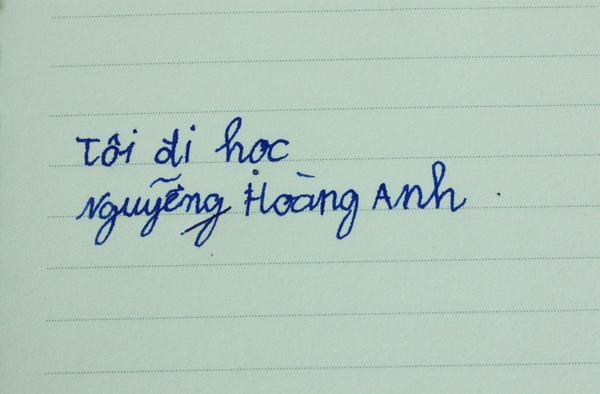 Tôi đi học
Nguyễn Hoàng Anh.